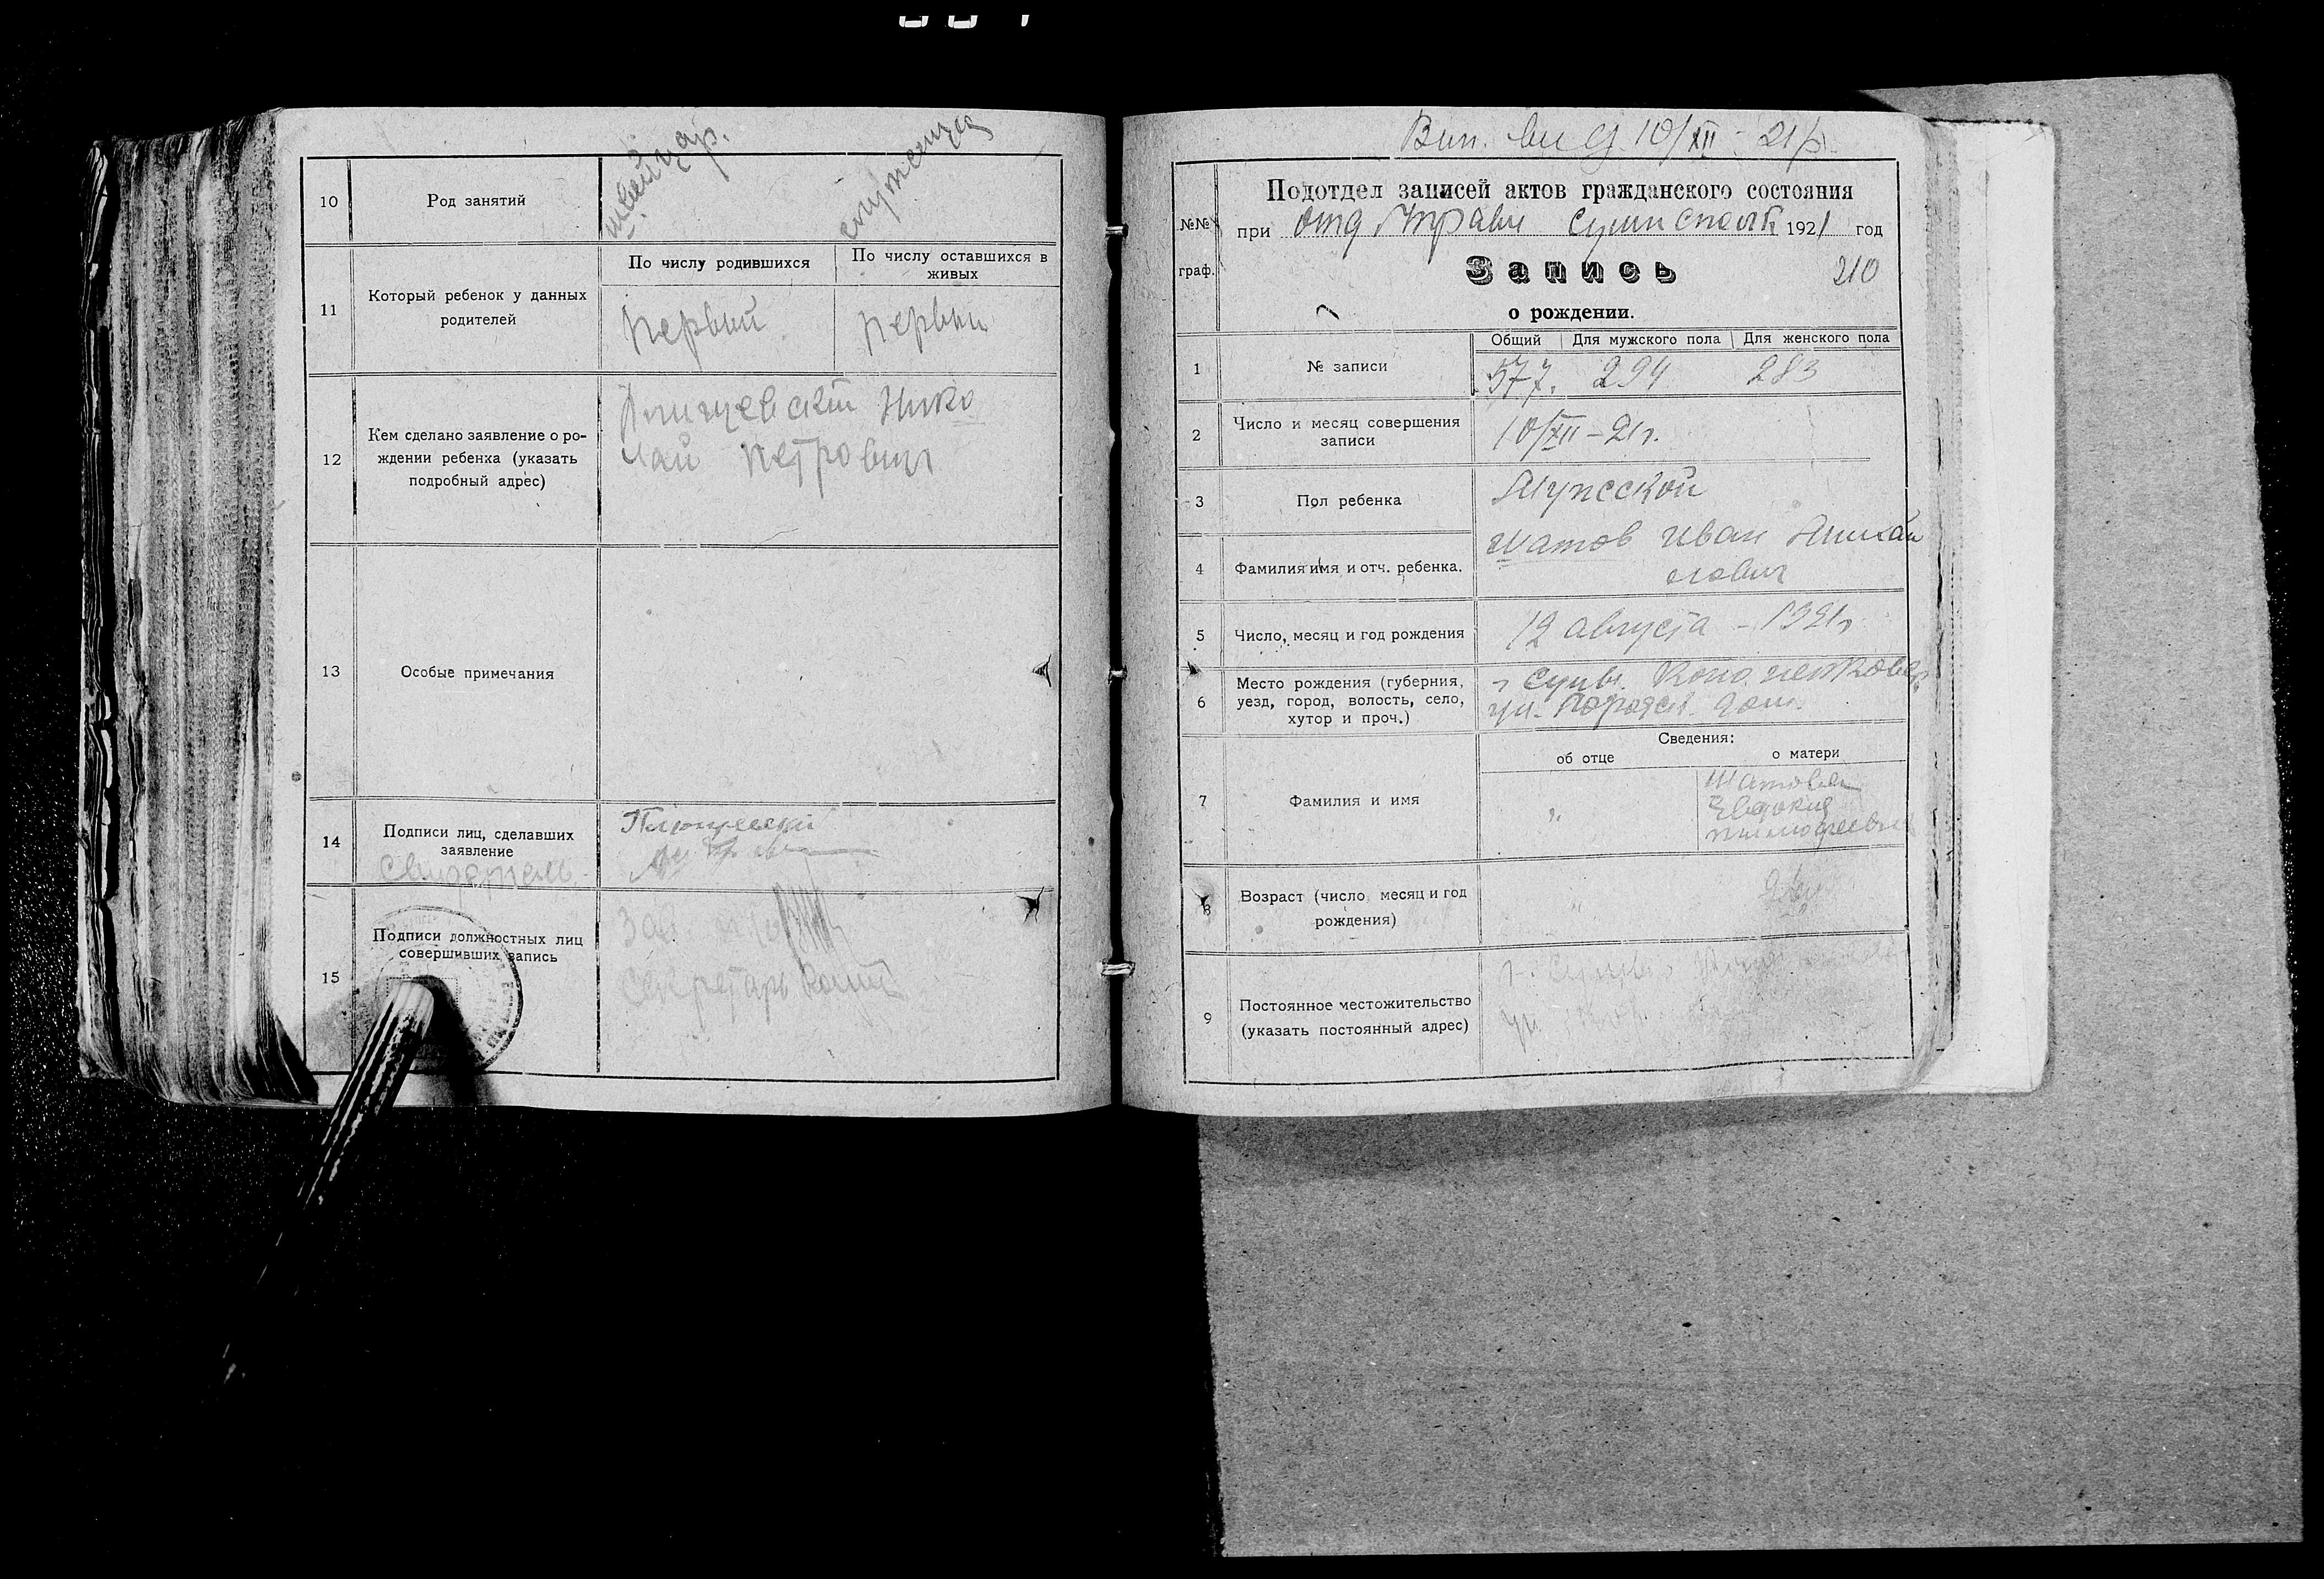 10
Род занятий
швейцар.
служанка
11
Который ребенок у данных
родителей
По числу родившихся
По числу оставшихся в
живых
Первый
Первый
12
Кем сделано заявление о ро-
ждении ребенка (указать
подробный адрес)
Нико
лай Петрович
13
Особые примечания
14
Подписи лиц, сделавших
заявление
15
Подписи должностных лиц
совершивших запись
Секретарь
10/XII - 21р.
№№
граф.
Подотдел записей актов гражданского состояния
при Отд Управ 1921 год
Запись
210
о рождении.
1
№ записи
Общий
Для мужского пола
Для женского пола
577.
294
283
2
Число и месяц совершения
записи
10/XII – 21 г.
3
Пол ребенка
Мужской
4
Фамилия имя и отч. ребенка.
Шатов Иван
5
Число, месяц и год рождения
12 августа – 1921 г.
6
Место рождения (губерния,
уезд, город, волость, село,
хутор и проч.)
г Сумы
ул. дом.
7
Фамилия и имя
Сведения:
об отце
о матери
"
Шатова
Евдокия
Тимофеевна
8
Возраст (число месяц и год
рождения)
"
9
Постоянное местожительство
(указать постоянный адрес)
г. Сумы
ул.